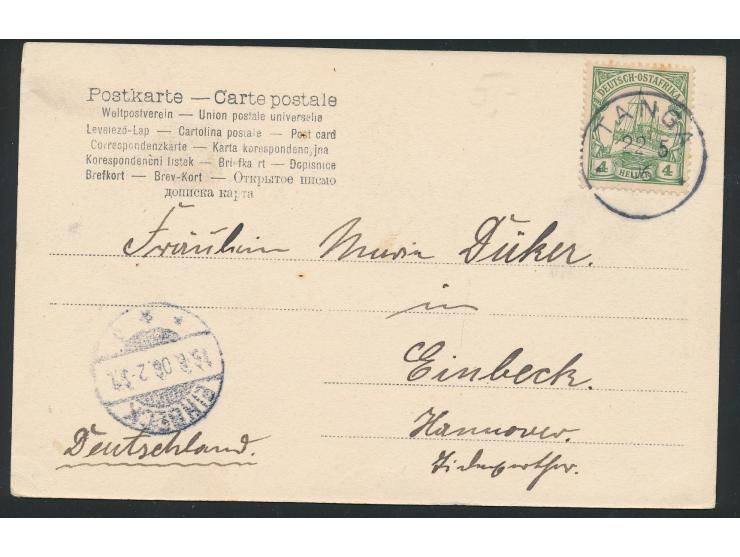 Postkarte — Carte postale
Weltpostverein — Union postale universelle
Levelező-Lap — Cartolina postale — Post card
Correspondenzkarte — Karta korespondencyjna
Korespondenční lístek — Briefkaart — Dopisnice
Brefkort — Brev-Kort — Открытое письмо
дописка карта
DEUTSCH-OSTAFRIKA
4 HELLER 4
TANGA
22 5
Fräulein Maria Düker.
in
Einbeck.
Hannover.
Deutschland.
EINBECK